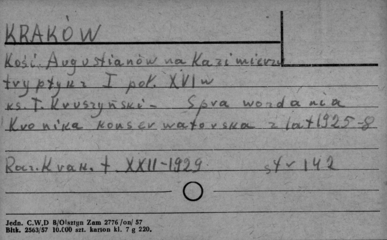 KRAKÓW
Kość. Augustianów na Kazimierzu
tryptyk z I poł. XVI w
ks. T. Kruszyński - Sprawozdania
Kronika konserwatorska z lat 1925-8
Rocz. Krak. t XXII-1929 str 142
Jedn. C.W.D 8/Olsztyn Zam 2776/on/57
Blhk. 2563/57 10.000 szt. karton kl. 7 g 220.